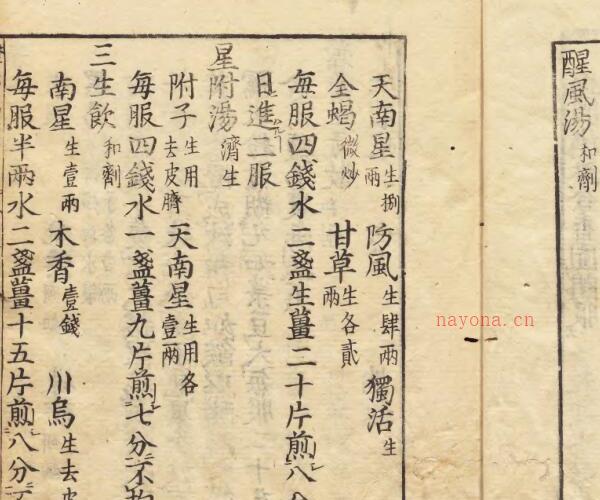 醒風湯 和劑
天南星 生捌兩 防風 生肆兩 獨活 生
全蝎 微炒 甘草 生各貳兩
每服四錢水二盞生薑二十片煎八分
日進二服
星附湯 濟生
附子 生用去皮臍 天南星 生用各壹兩
每服四錢水一盞薑九片煎七分不
三生飲 和劑
南星 生壹兩 木香 壹錢 川烏 生去皮
每服半兩水二盞薑十五片煎八分
nayona.cn